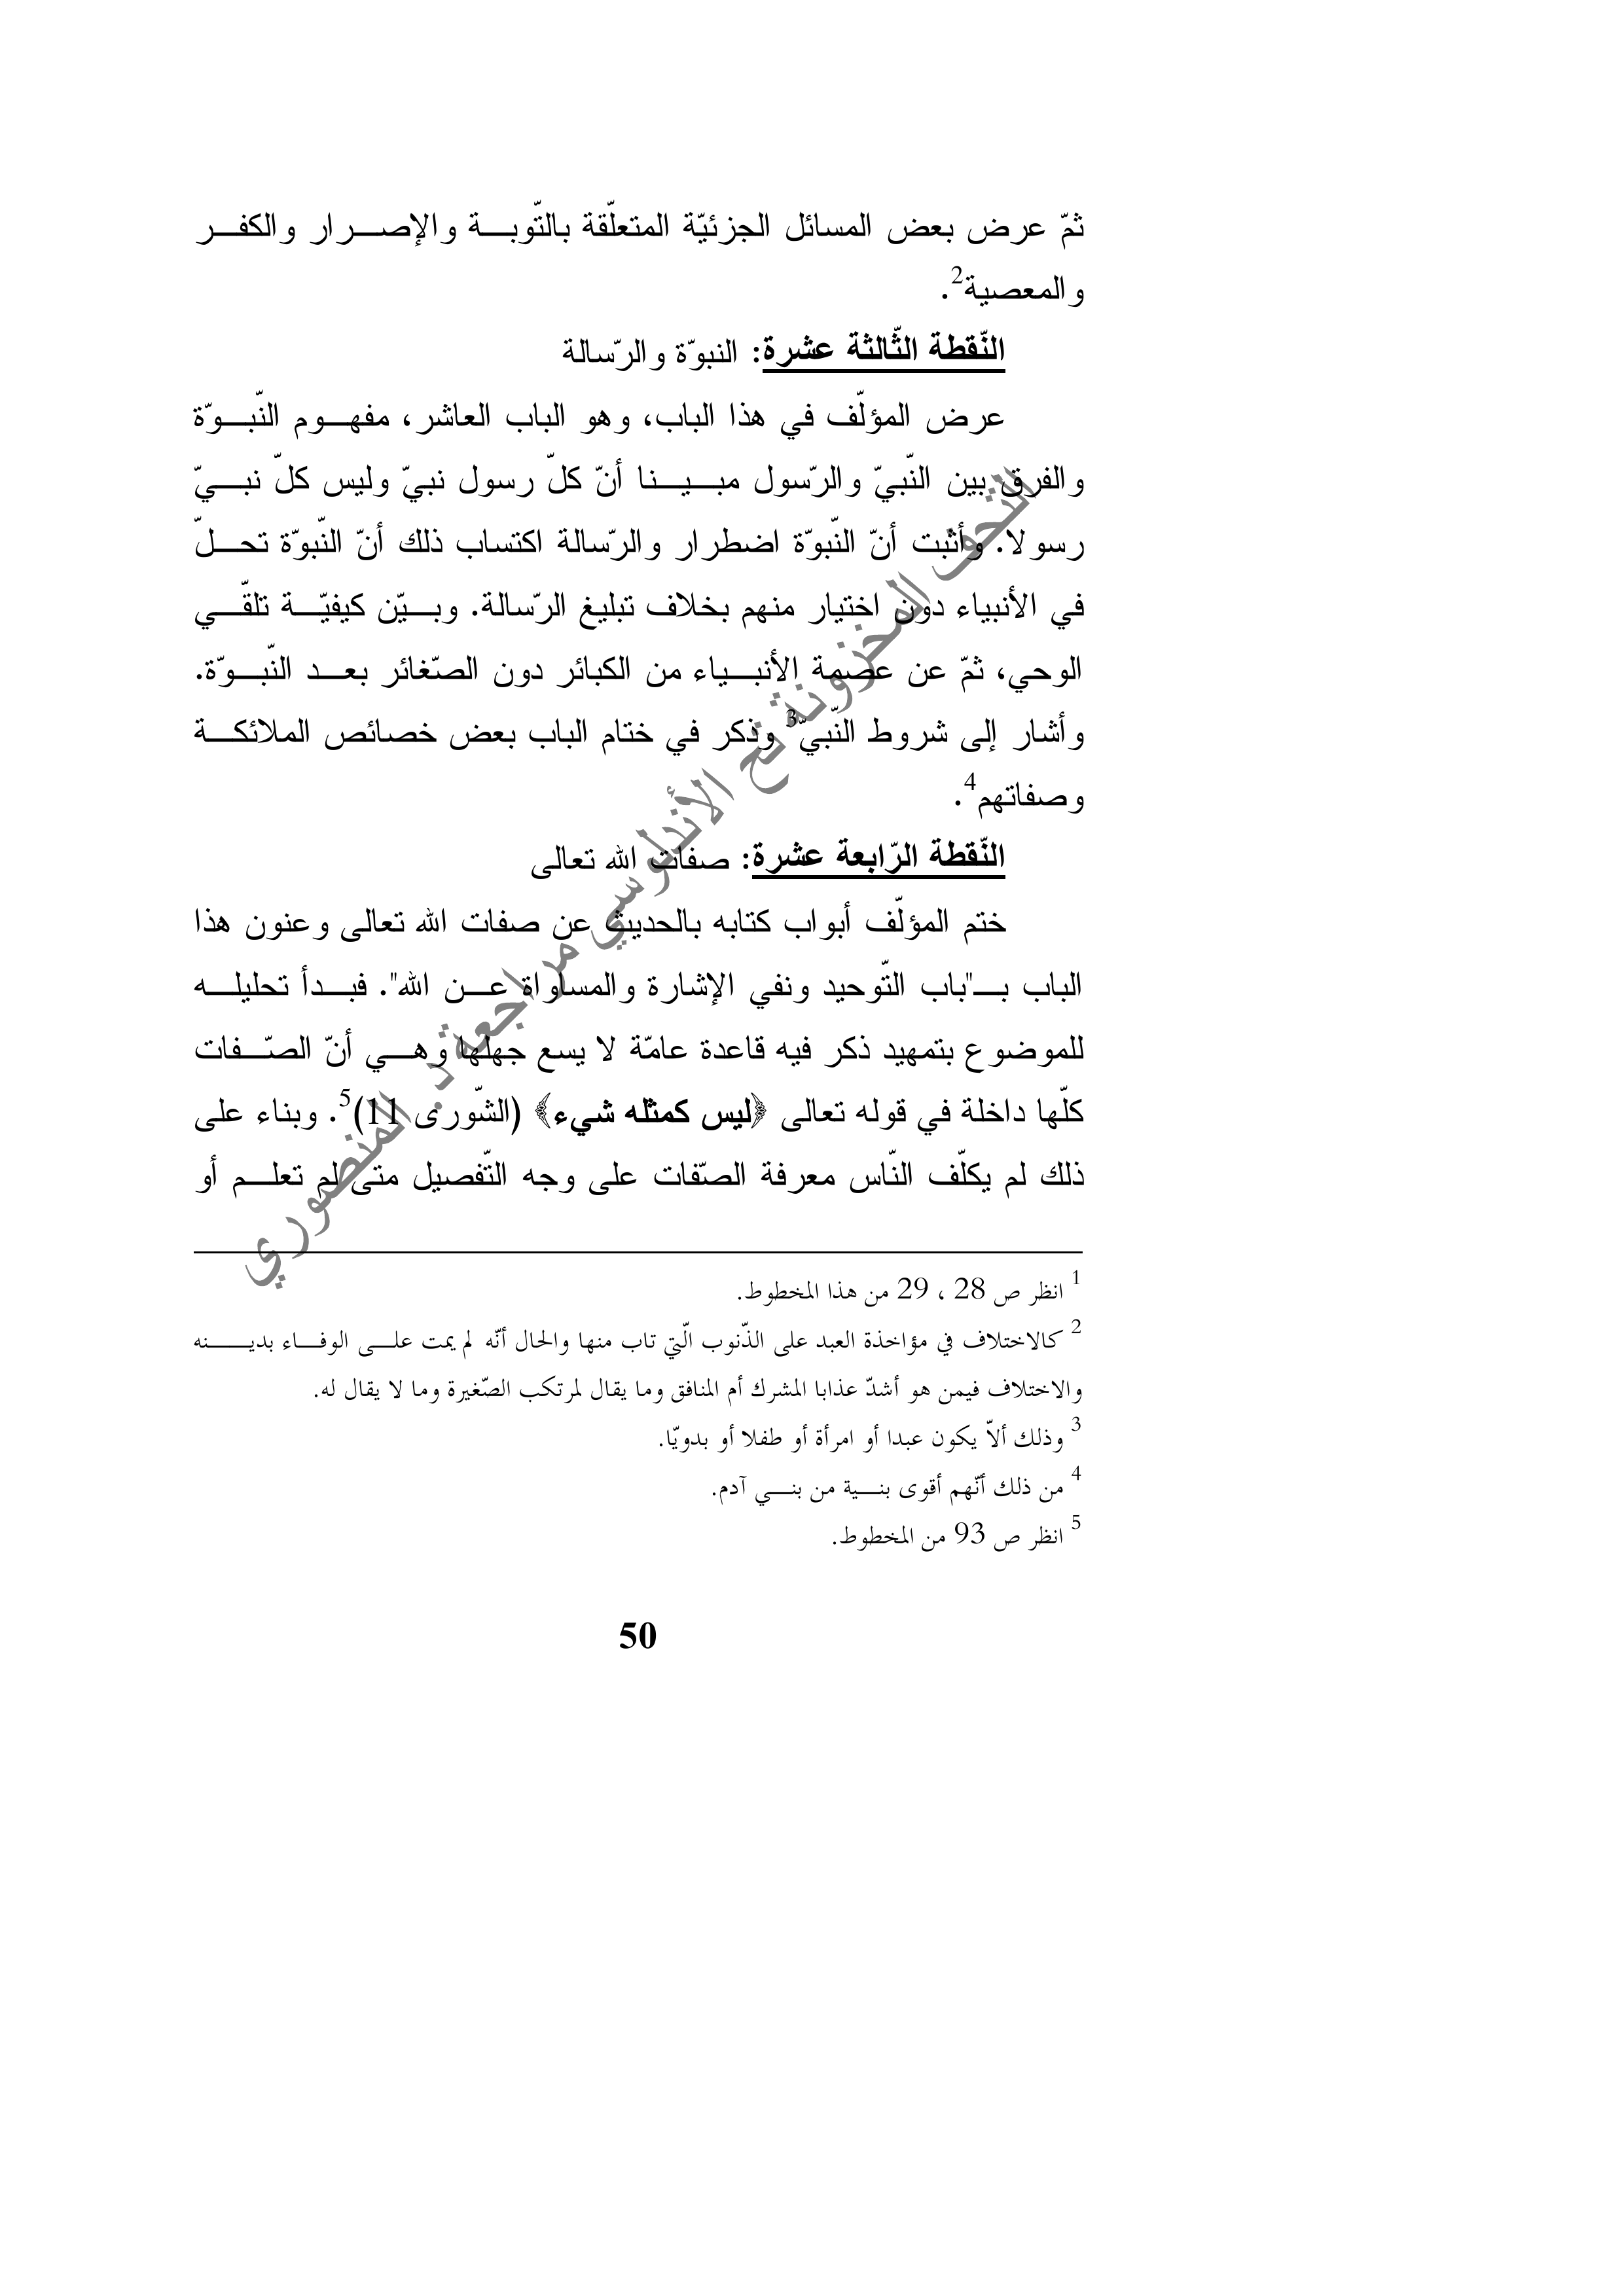 ثمّ عرض بعض المسائل الجزئيّة المتعلّقة بالتّوبـــة والإصـــرار والكفـــر
والمعصية2.
النّقطة الثّالثة عشرة: النبوّة والرّسالة
عرض المؤلّف في هذا الباب، وهو الباب العاشر، مفهـــوم النّبـــوّة
والفرق بين النّبيّ والرّسول مبـــيـــنا أنّ كلّ رسول نبيّ وليس كلّ نبـــيّ
رسولا. وأثبت أنّ النّبوّة اضطرار والرّسالة اكتساب ذلك أنّ النّبوّة تحـــلّ
في الأنبياء دون اختيار منهم بخلاف تبليغ الرّسالة. وبـــيّن كيفيّـــة تلقّـــي
الوحي، ثمّ عن عصمة الأنبـــياء من الكبائر دون الصّغائر بعـــد النّبـــوّة.
وأشار إلى شروط النّبيّ3 وذكر في ختام الباب بعض خصائص الملائكـــة
وصفاتهم4.
النّقطة الرّابعة عشرة: صفات الله تعالى
ختم المؤلّف أبواب كتابه بالحديث عن صفات الله تعالى وعنون هذا
الباب بـــ"باب التّوحيد ونفي الإشارة والمساواة عـــن الله". فبـــدأ تحليلـــه
للموضوع بتمهيد ذكر فيه قاعدة عامّة لا يسع جهلها وهـــي أنّ الصّـــفات
كلّها داخلة في قوله تعالى ﴿ليس كمثله شيء﴾ (الشّورى 11)5. وبناء على
ذلك لم يكلّف النّاس معرفة الصّفات على وجه التّفصيل متى لم تعلـــم أو
1 انظر ص 28 ، 29 من هذا المخطوط.
2 كالاختلاف في مؤاخذة العبد على الذّنوب الّتي تاب منها والحال أنّه لم يمت علـــى الوفـــاء بديـــــنه
والاختلاف فيمن هو أشدّ عذابا المشرك أم المنافق وما يقال لمرتكب الصّغيرة وما لا يقال له.
3 وذلك ألاّ يكون عبدا أو امرأة أو طفلا أو بدويّا.
4 من ذلك أنّهم أقوى بنـــية من بنـــي آدم.
5 انظر ص 93 من المخطوط.
50
التحف المخزونة تح الأندلوسي مراجعة د. المنصوري